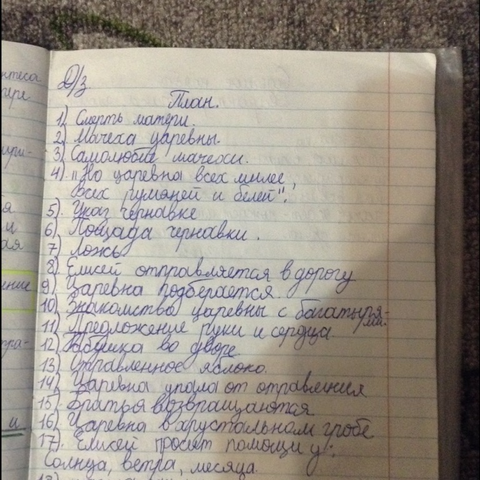 Д/з
План.
1) Смерть матери.
2) Мачеха царевны.
3) Самолюбие мачехи.
4) "Но царевна всех милее,
Всех румяней и белей".
5) Указ чернавке
6) Пощада чернавки.
7) Ложь
8) Елисей отправляется в дорогу
9) Царевна подберается
10) Знакомство царевны с багатыря-
ми.
11) Предложение руки и сердца
12) во дворе
13) Отравленное яблоко.
14) Царивна упала от отравления
15) Братья возвращаются
16) Царевна в хрустальном гробе
17) Елисей просит помощи у:
Солнца, ветра, месяца.
18)